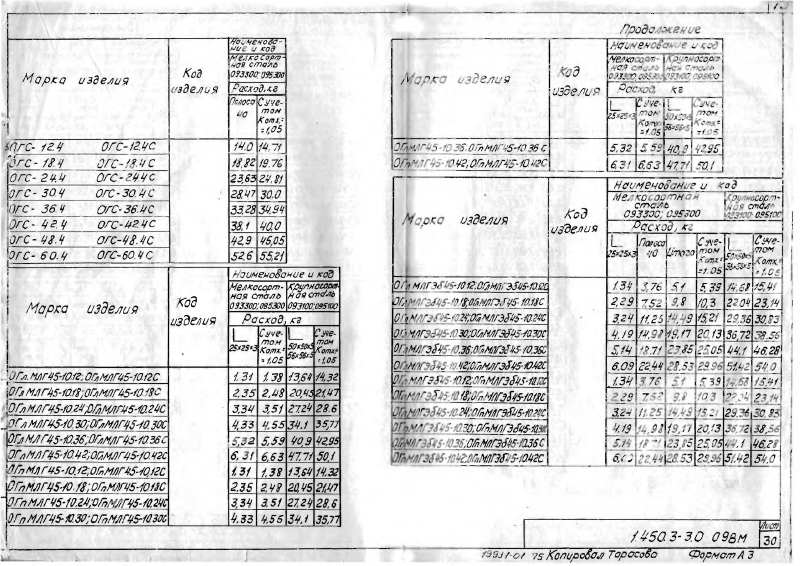 Марка изделия
Код изделия
Наименова-
ние и код
Мелкосорт-
ная сталь
093300; 095300
Расход, кг
Полоса 40
С уче-
том
Котх.=
=1,05
ОГС-12.4 ОГС-12.4С 14.0 14.71
ОГС-18.4 ОГС-18.4С 18,82 19.76
ОГС-24.4 ОГС-24.4С 23,63 24.81
ОГС-30.4 ОГС-30.4С 28.47 30.0
ОГС-36.4 ОГС-36.4С 33.28 34,94
ОГС-42.4 ОГС-42.4С 38,1 40,0
ОГС-48.4 ОГС-48.4С 42,9 45,05
ОГС-60.4 ОГС-60.4С 52,6 55,21
Марка изделия
Код изделия
Наименование и код
Мелкосорт-
ная сталь
093300; 095300
Крупносорт-
ная сталь
093100; 095100
Расход, кг
25×25×3
С уче-
том
Котх.=
=1,05
50×50×5
56×56×5
С уче-
том
Котх=
=1,05
ОГпМЛГ45-10.12; ОГпМЛГ45-10.12С 1.31 1.38 13,64 14,32
ОГпМЛГ45-10.18; ОГпМЛГ45-10.18С 2,35 2,48 20,45 21,47
ОГпМЛГ45-10.24; ОГпМЛГ45-10.24С 3,34 3,51 27,24 28.6
ОГпМЛГ45-10.30; ОГпМЛГ45-10.30С 4,33 4.55 34.1 35,77
ОГпМЛГ45-10.36; ОГпМЛГ45-10.36С 5,32 5,59 40,9 42,95
ОГпМЛГ45-10.42; ОГпМЛГ45-10.42С 6,31 6,63 47.71 50,1
ОГпМЛГ45-10.12; ОГпМЛГ45-10.12С 1,31 1,38 13,64 14,32
ОГпМЛГ45-10.18; ОГпМЛГ45-10.18С 2.35 2,48 20,45 21,47
ОГпМЛГ45-10.24; ОГпМЛГ45-10.24С 3,34 3.51 27,24 28,6
ОГпМЛГ45-10.30; ОГпМЛГ45-10.30С 4.33 4.55 34.1 35,77
Продолжение
Марка изделия
Код изделия
Наименование и код
Мелкосорт-
ная сталь
093300, 095300
Крупносорт-
ная сталь
093100, 095100
Расход, кг
25×25×3
С уче-
том
Котх.=
=1,05
50×50×5
56×56×5
С уче-
том
Котх.=
=1,05
ОГпМЛГ45-10.36, ОГпМЛГ45-10.36С 5.32 5.59 40,9 42,95
ОГпМЛГ45-10.42, ОГпМЛГ45-10.42С 6.31 6,63 47,71 50.1
Марка изделия
Код изделия
Наименование и код
Мелкосортная
сталь
093300; 095300
Крупносорт-
ная сталь
093100; 095100
Расход, кг
25×25×3
Полоса 40
Итого
С уче-
том
Котх.=
=1.05
50×50×5
56×56×5
С уче-
том
Котх.=
=1.05
ОГпМЛГЭб45-10.12; ОГпМЛГЭб45-10.12С 1.34 3,76 5,1 5,39 14,68 15,41
ОГпМЛГЭб45-10.18; ОГпМЛГЭб45-10.18С 2,29 7.52 9,8 10,3 22.04 23,14
ОГпМЛГЭб45-10.24; ОГпМЛГЭб45-10.24С 3,24 11.25 14,49 15,21 29,36 30,83
ОГпМЛГЭб45-10.30; ОГпМЛГЭб45-10.30С 4.19 14,98 19,17 20,13 36,72 38,56
ОГпМЛГЭб45-10.36; ОГпМЛГЭб45-10.36С 5,14 18.71 23,85 25,05 44.1 46,28
ОГпМЛГЭб45-10.42; ОГпМЛГЭб45-10.42С 6.09 22.44 28.53 29.96 51,42 54.0
ОГпМЛГЭб45-10.12; ОГпМЛГЭб45-10.12С 1.34 3,76 5,1 5.39 14.68 15,41
ОГпМЛГЭб45-10.18; ОГпМЛГЭб45-10.18С 2,29 7.52 9.8 10.3 23,14
ОГпМЛГЭб45-10.24; ОГпМЛГЭб45-10.24С 3,24 11.25 14,49 15,21 29,36 30,83
ОГпМЛГЭб45-10.30; ОГпМЛГЭб45-10.30С 4.19 14,98 19,17 20,13 36,72 38,56
ОГпМЛГЭб45-10.36, ОГпМЛГЭб45-10.36С 5.14 18.71 23,85 25,05 44.1 46,28
ОГпМЛГЭб45-10.42; ОГпМЛГЭб45-10.42С 22.44 28.53 29,96 51.42 54,0
1.450.3-3.0 098М
Лист
30
19931-01 75 Копировал Тарасова Формат А3